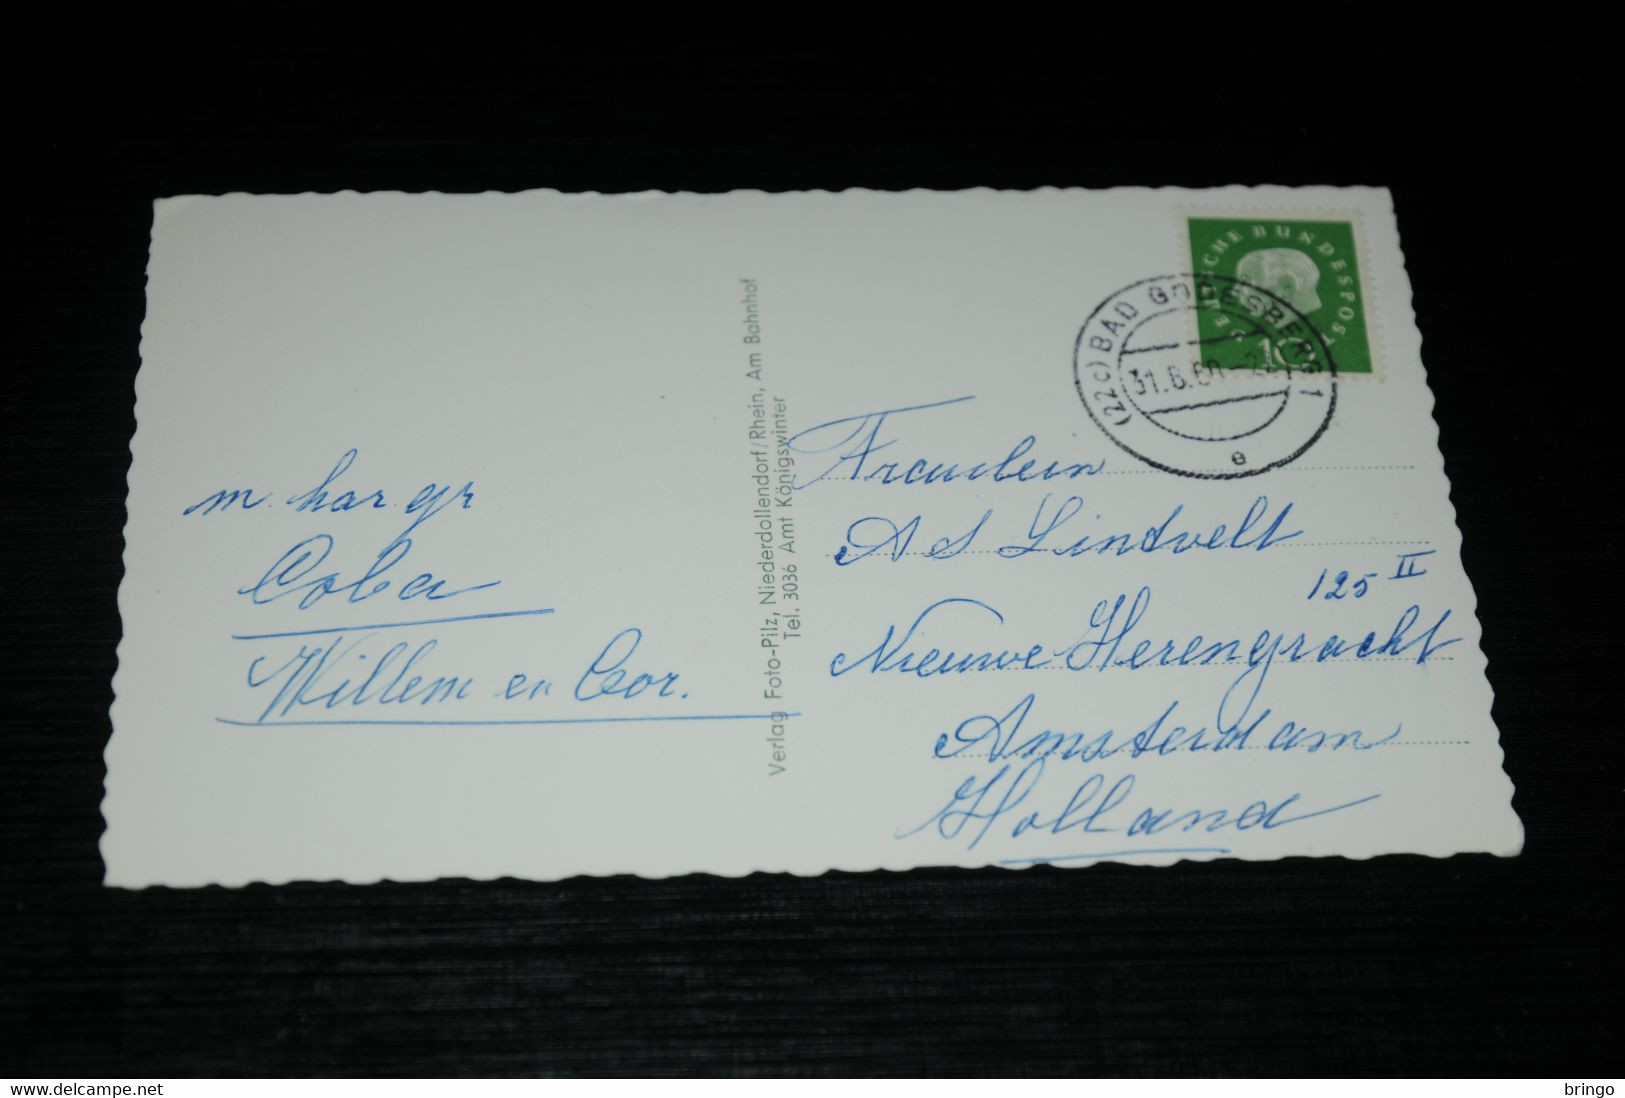 m. har. gr
Coba
Willem en Cor.
Verlag Foto-Pilz, Niederdollendorf/Rhein, Am Bahnhof
Tel. 3036 Amt Königswinter
DEUTSCHE BUNDESPOST
10
(22c) BAD GODESBERG 1
31.8.60-22
e
Fraulein
A S Lintvelt
125 II
Nieuwe Herengracht
Amsterdam
Holland
www.delcampe.net
bringo